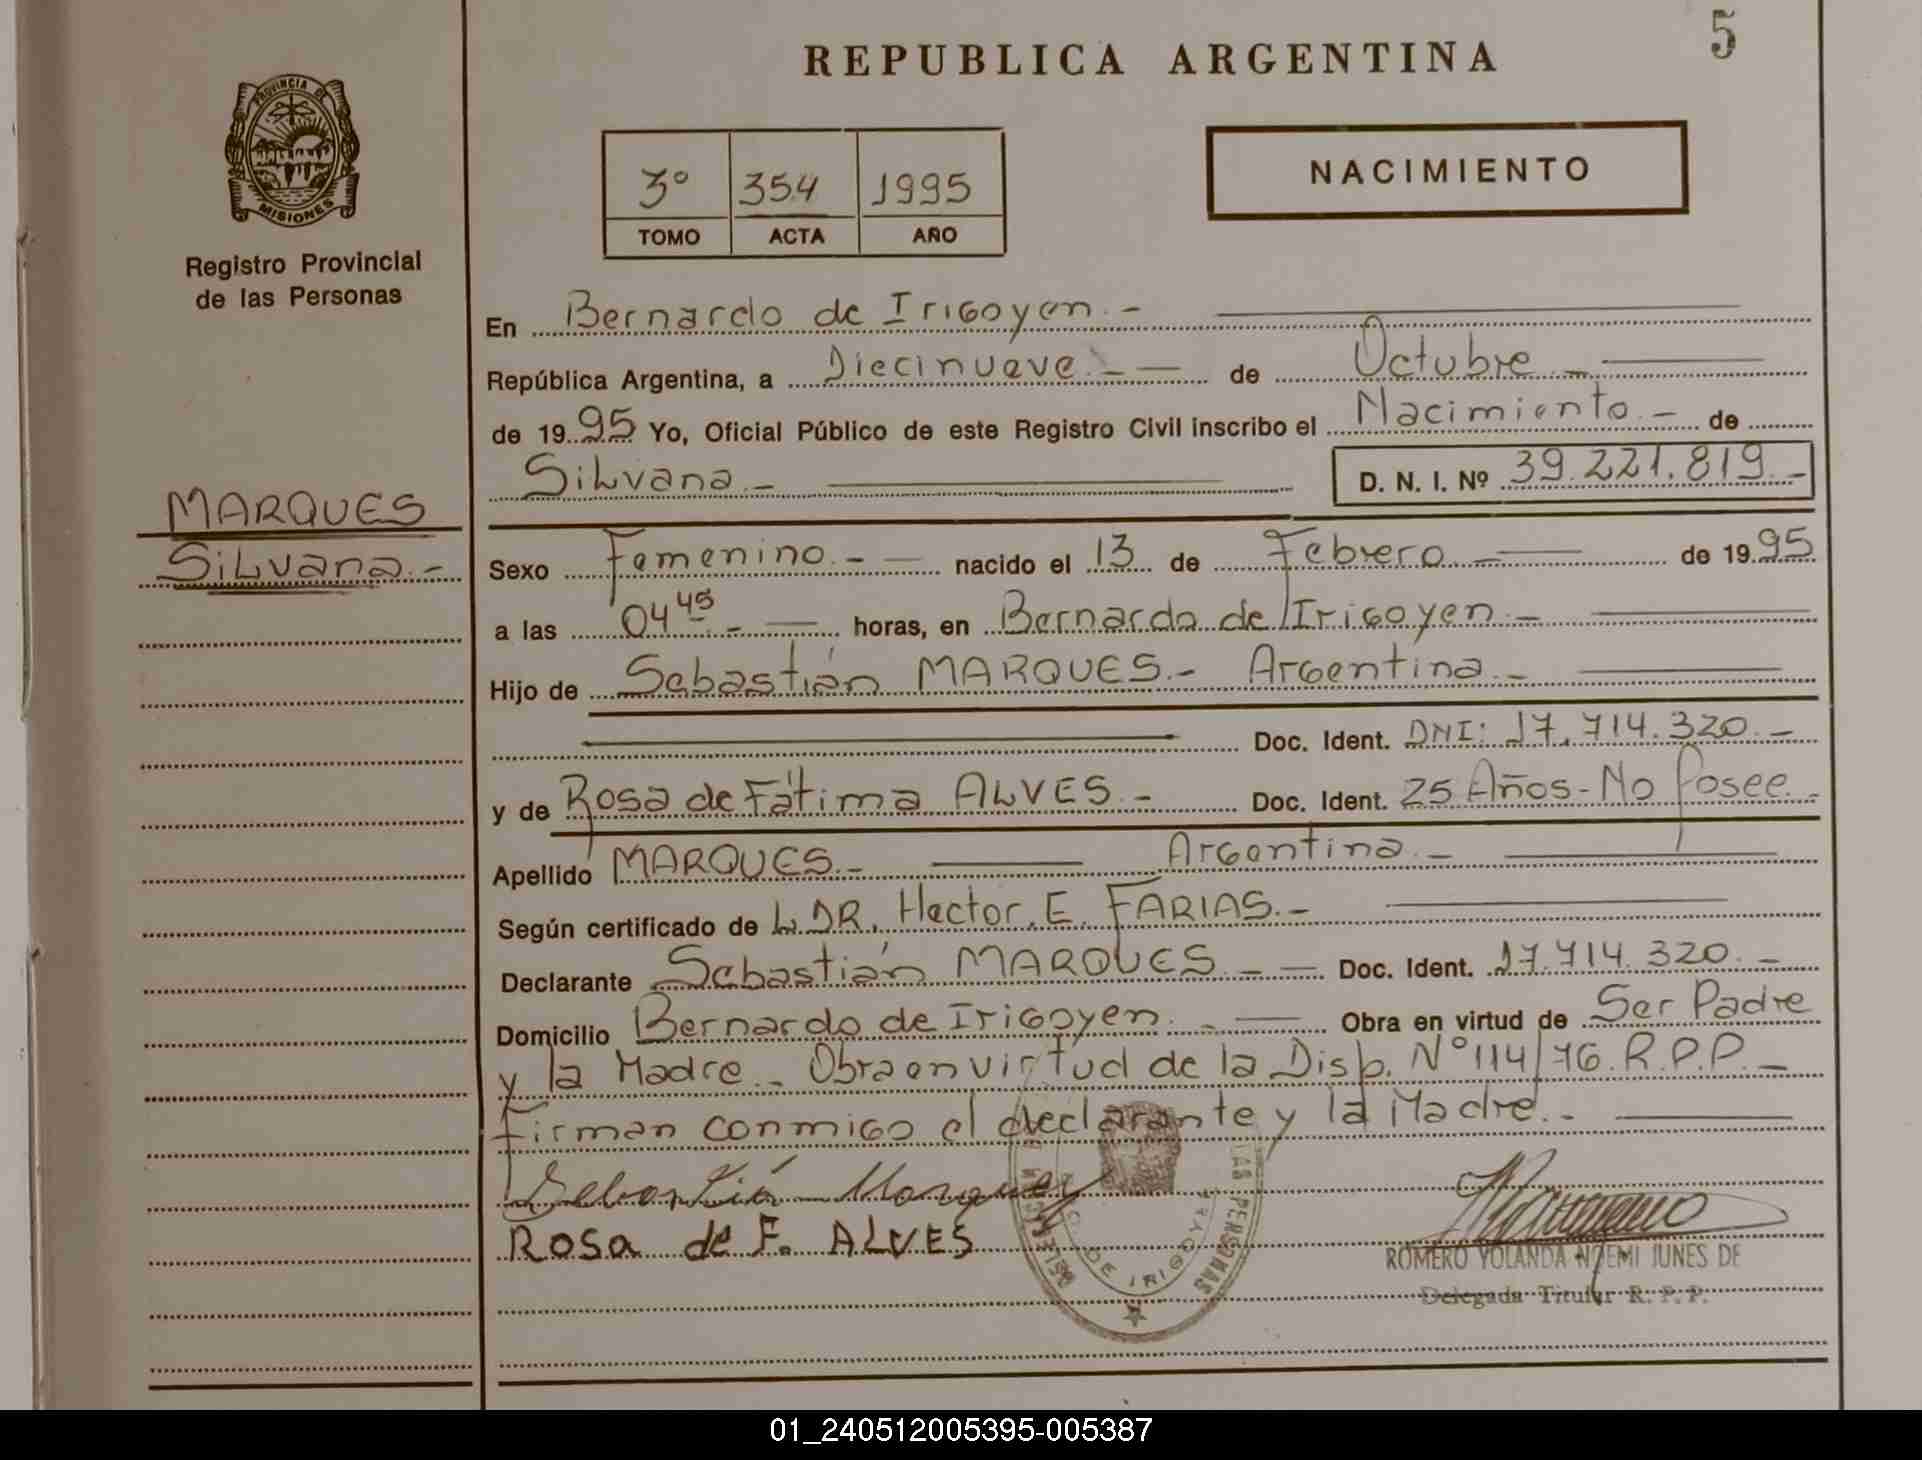 5
REPUBLICA ARGENTINA
PROVINCIA DE MISIONES
Registro Provincial
de las Personas
3º 354 1995
TOMO ACTA AÑO
NACIMIENTO
En Bernardo de Irigoyen.-
República Argentina, a Diecinueve.- de Octubre.-
de 1995 Yo, Oficial Público de este Registro Civil inscribo el Nacimiento.- de
Silvana.- D. N. I. Nº 39.221.819.-
MARQUES
Silvana.-
Sexo Femenino.- nacido el 13 de Febrero.- de 1995
a las 04 45.- horas, en Bernardo de Irigoyen.-
Hijo de Sebastián MARQUES.- Argentina.-
Doc. Ident. DNI: 17.714.320.-
y de Rosa de Fátima ALVES.- Doc. Ident. 25 Años-No Posee.-
Apellido MARQUES.- Argentina.-
Según certificado de L. DR. Hector. E. FARIAS.-
Declarante Sebastián MARQUES.- Doc. Ident. 17.714.320.-
Domicilio Bernardo de Irigoyen.- Obra en virtud de Ser Padre
y la Madre.- Obra en virtud de la Disp. Nº 114/76. R.P.P.-
Firman conmigo el declarante y la Madre.-
Sebastián Marques
ROSA de F. ALVES
ROMERO YOLANDA NOEMI JUNES DE
Delegada Titular R. P. P.
01_240512005395-005387